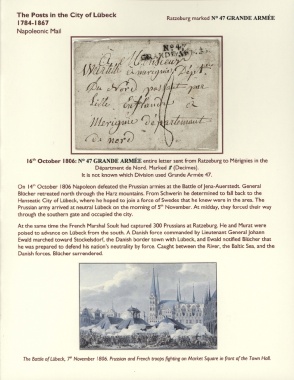 The Posts in the City of Lübeck
1784-1867
Napoleonic Mail
Ratzeburg marked Nº 47 GRANDE ARMÉE
Nº 47
GRANDE ARMÉE
Du Nord
Lille
departement
de nord
16th October 1806: Nº 47 GRANDE ARMÉE entire letter sent from Ratzeburg to Mérignies in the
Département de Nord. Marked 8 (Decimes).
It is not known which Division used Grande Armée 47.
On 14th October 1806 Napoleon defeated the Prussian armies at the Battle of Jena-Auerstedt. General
Blücher retreated north through the Harz mountains. From Schwerin he determined to fall back to the
Hanseatic City of Lübeck, where he hoped to join a force of Swedes that he knew were in the area. The
Prussian army arrived at neutral Lübeck on the morning of 5th November. At midday, they forced their way
through the southern gate and occupied the city.
At the same time the French Marshal Soult had captured 300 Prussians at Ratzeburg. He and Murat were
poised to advance on Lübeck from the south. A Danish force commanded by Lieutenant General Johann
Ewald marched toward Stockelsdorf, the Danish border town with Lübeck, and Ewald notified Blücher that
he was prepared to defend his nation's neutrality by force. Caught between the River, the Baltic Sea, and the
Danish forces. Blücher surrendered.
The Battle of Lübeck, 7th November 1806. Prussian and French troops fighting on Market Square in front of the Town Hall.